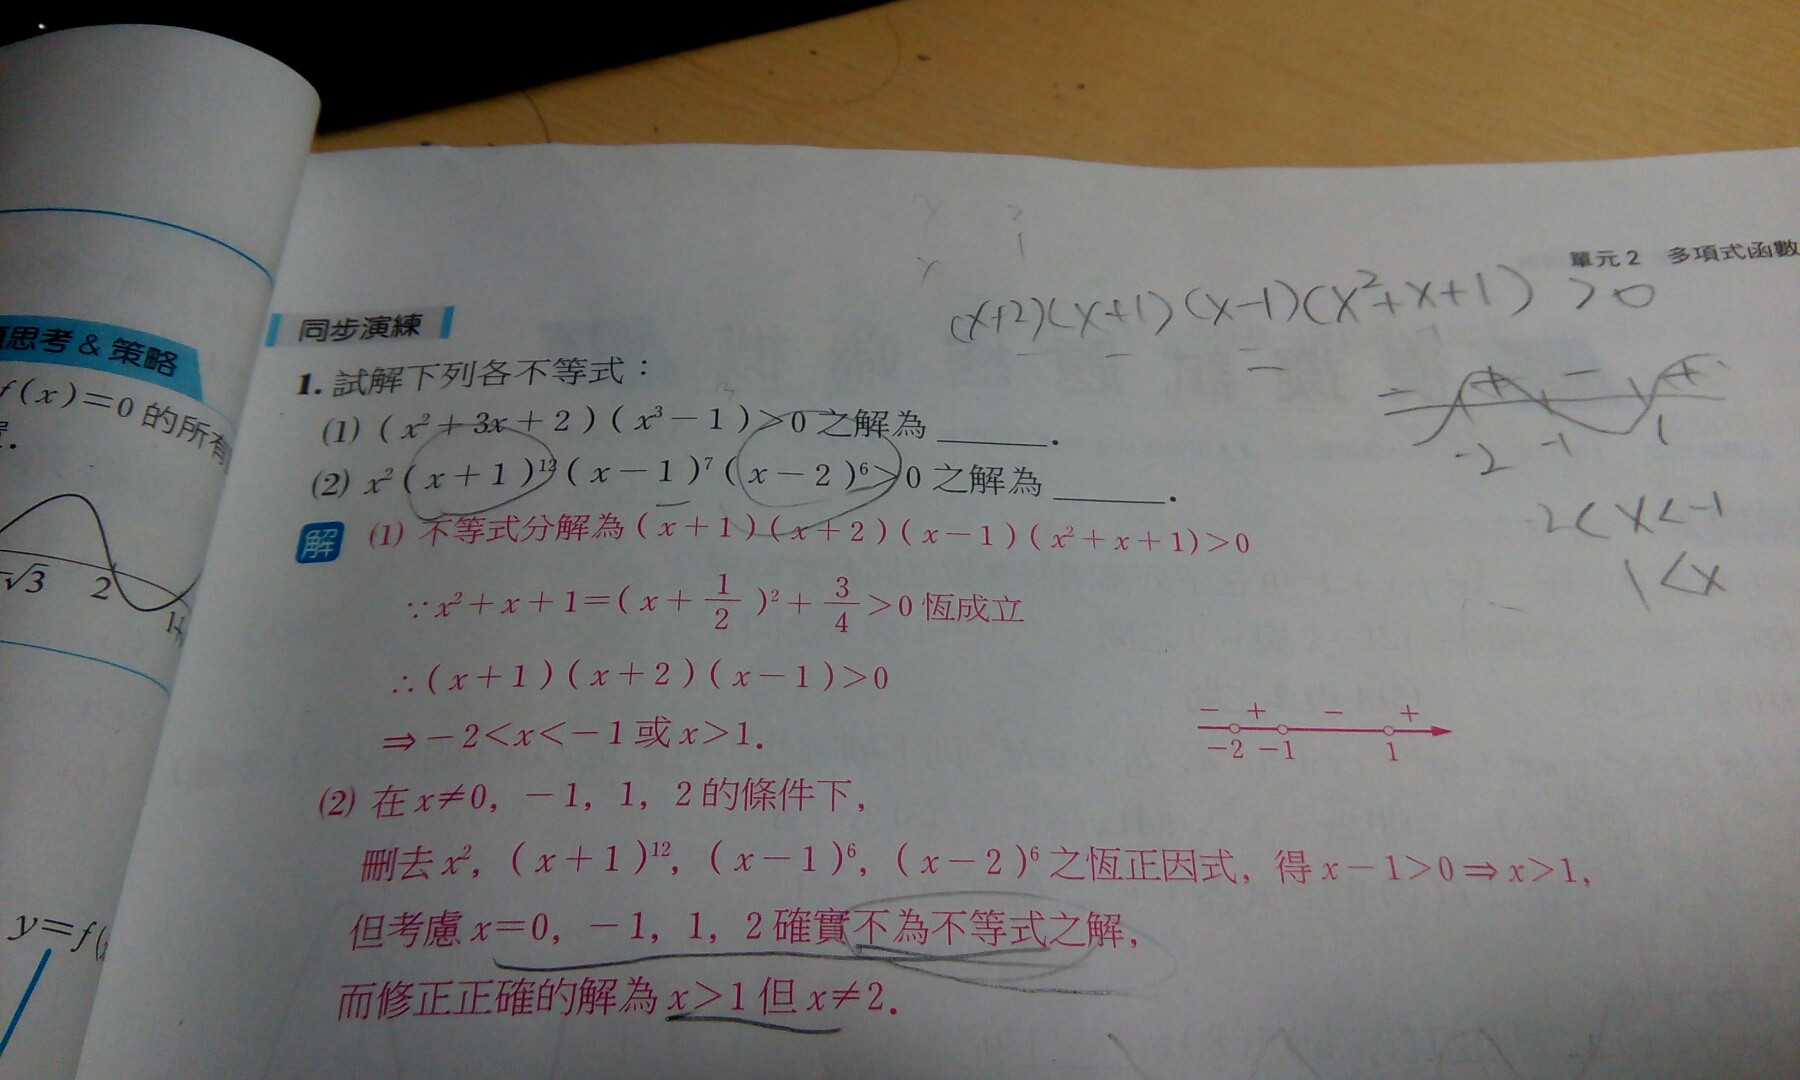 單元2 多項式函數
(x+2)(x+1)(x-1)(x²+x+1) > 0
同步演練
1. 試解下列各不等式：
(1) (x²+3x+2)(x³-1)>0 之解為______.
(2) x²(x+1)¹²(x-1)⁷(x-2)⁶>0 之解為______.
解 (1) 不等式分解為(x+1)(x+2)(x-1)(x²+x+1)>0
∵x²+x+1=(x+1/2)²+3/4>0 恆成立
∴(x+1)(x+2)(x-1)>0
⇒-2<x<-1或x>1.
- + - +
-2 -1 1
(2) 在x≠0，-1，1，2的條件下，
刪去x²，(x+1)¹²，(x-1)⁶，(x-2)⁶之恆正因式，得x-1>0⇒x>1，
但考慮x=0，-1，1，2確實不為不等式之解，
而修正正確的解為x>1但x≠2.
- + - +
-2 -1 1
2<x<-1
1<x
思考&策略
f(x)=0的所有
-√3 2
y=f(